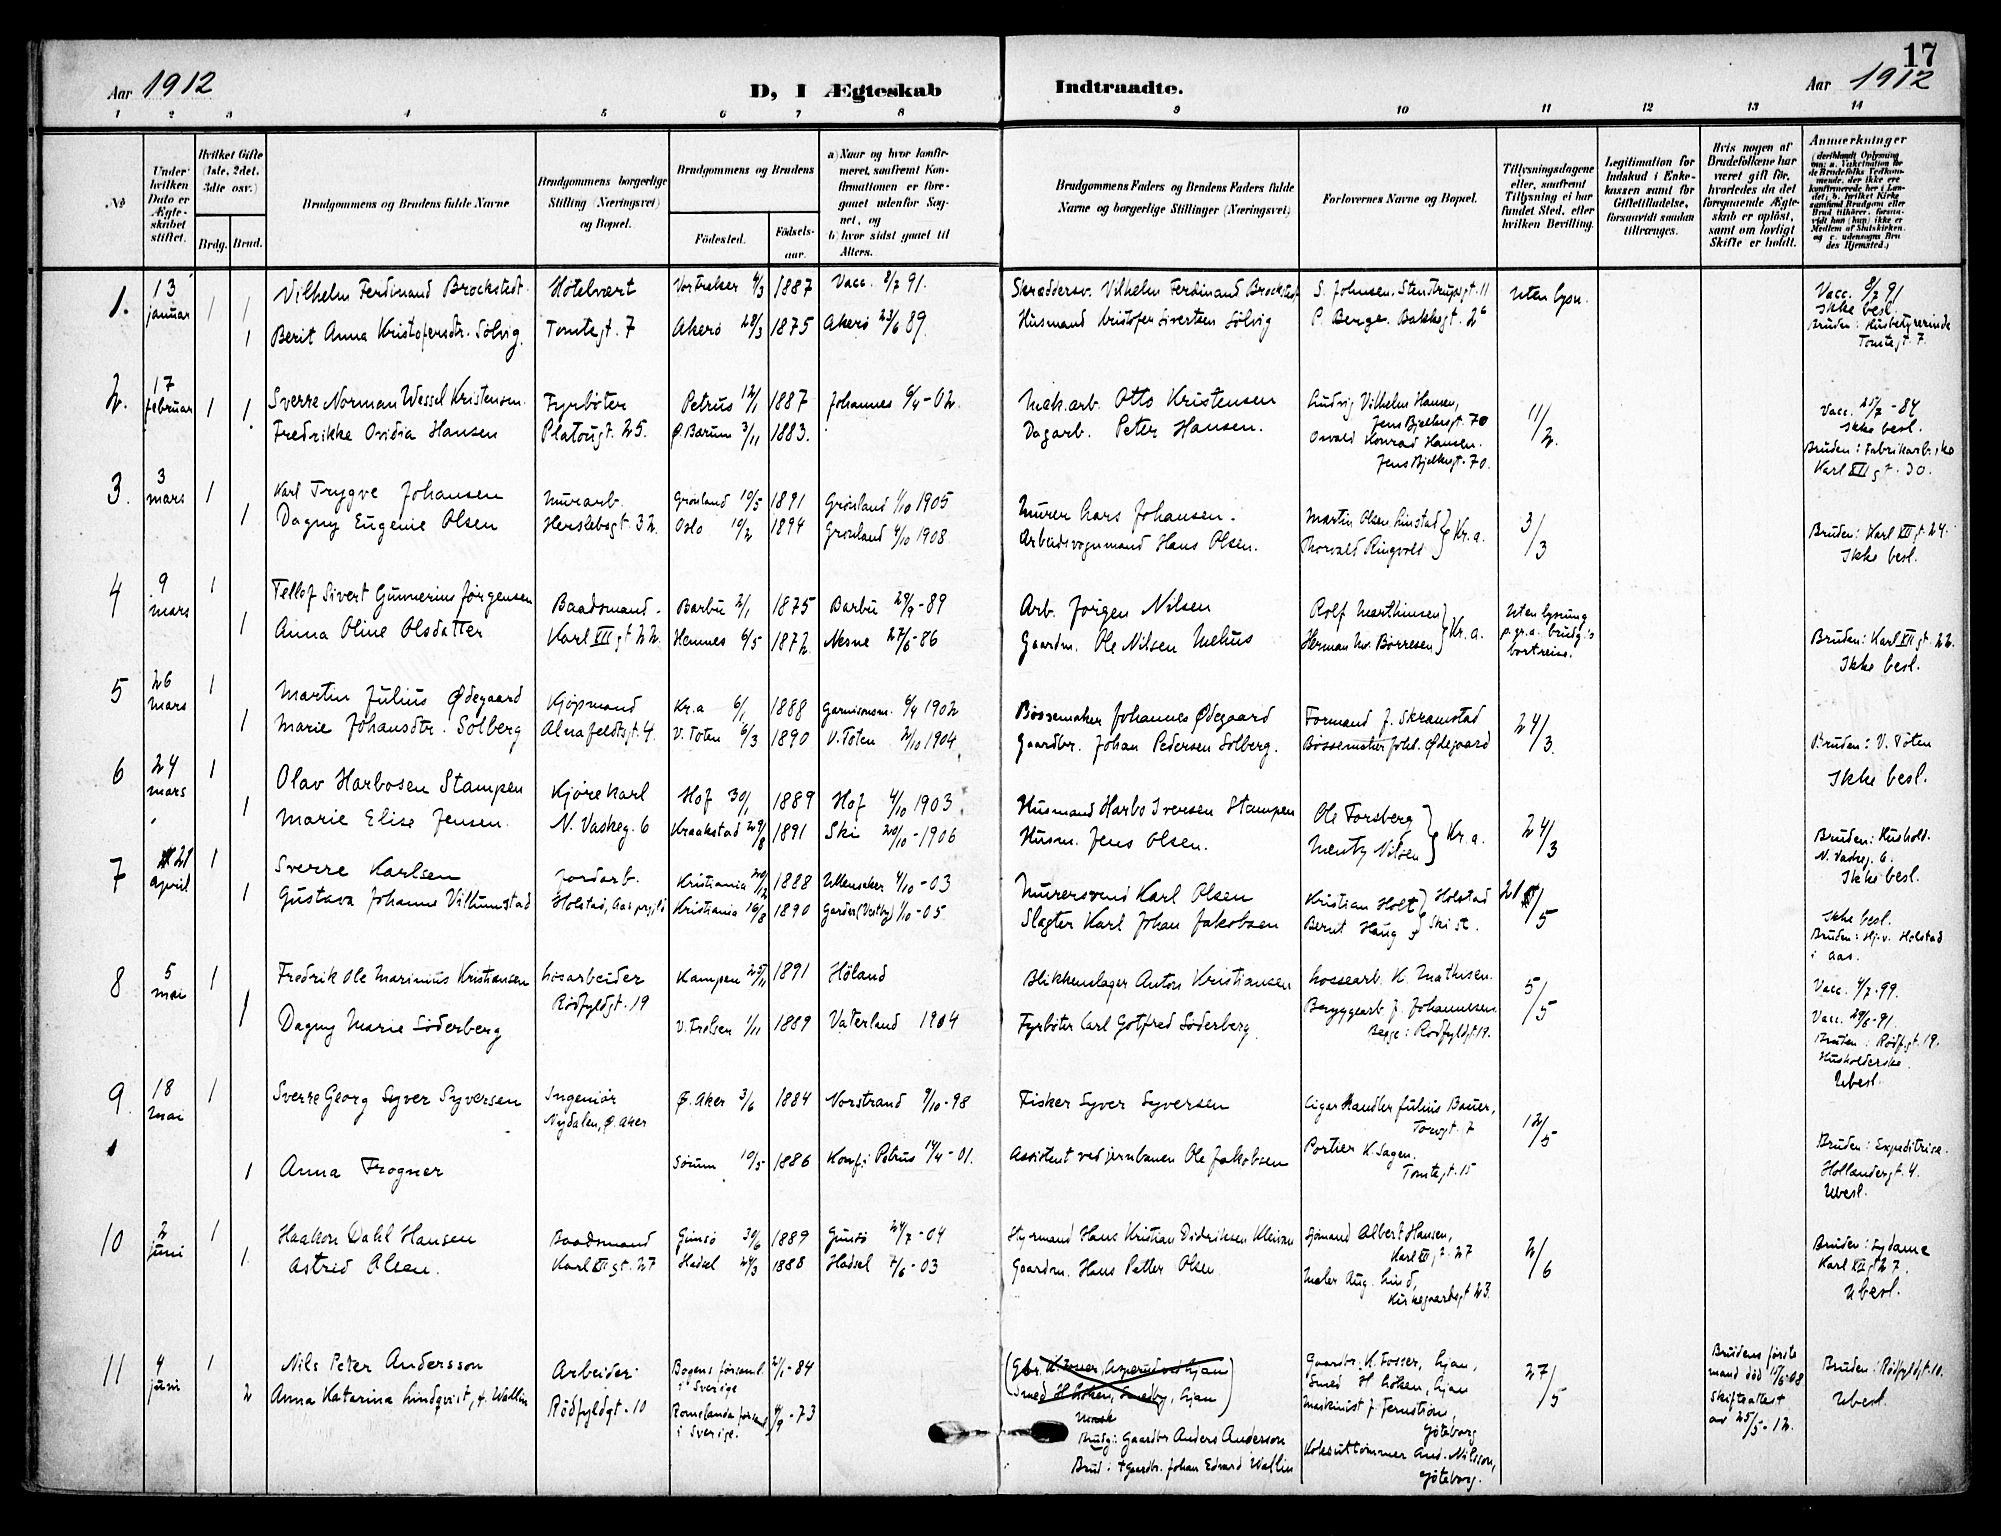 17
Aar 1912 D, I Ægteskab Indtraadte. Aar 1912
1 2 3 4 5 6 7 8 9 10 11 12 13 14
No
Under hvilken Dato er Ægteskabet stiftet.
Hvilket Gifte (1ste, 2det, 3die osv.)
Brdg. Brud.
Brudgommens og Brudens fulde Navne
Brudgommens borgerlige Stilling (Næringsvei) og Bopæl.
Brudgommens og Brudens
Fødested. Fødselsaar.
a) Naar og hvor konfirmeret, saafremt Konfirmationen er foregaaet udenfor Sognet, og
b) hvor sidst gaaet til Alters.
Brudgommens Faders og Brudens Faders fulde Navne og borgerlige Stillinger (Næringsvei)
Forlovernes Navne og Bopæl.
Tillysningsdagene eller, saafremt Tillysning ei har fundet Sted, efter hvilken Bevilling.
Legitimation for Indskud i Enkekassen samt for Giftetilladelse, forsaavidt saadan tiltrænges.
Hvis nogen af Brudefolkene har været gift før, hvorledes da det foregaaende Ægteskab er opløst, samt om lovligt Skifte er holdt.
Anmærkninger
1. 13 januar 1 Vilhelm Ferdinand Brockstedt Hotelvært 1887 Vacc. 8/7 91. Skræddersv. Vilhelm Ferdinand Brockstedt S. Johnsen, Stenstrupsgt. 11 Uten lysn. Vacc. 8/7 91
Ikke besl.
1 Berit Anna Kristofersdtr. Solvig Tomtegt. 7 Akerø 28/3 1875 Akerø 23/6 89. Husmand Kristofer Sivertsen Solvig P. Berge. Bakkegt. 26 Bruden: Husbetyrerinde
Tomtegt. 7.
2. 17 februar 1 Sverre Norman Wessel Kristensen Fyrbøter Petrus 12/1 1887 Johannes 6/4-02. Mek.arb. Otto Kristensen Ludvig Vilhelm Hansen,
Jens Bjelkesgt. 70 11/2. Vacc. 25/7-84
Ikke besl.
1 Fredrikke Ovidia Hansen Platousgt. 25. Ø. Bærum 3/11 1883. Dagarb. Peter Hansen. Osvald Konrad Hansen.
Jens Bjelkesgt. 70. Bruden: Fabrikarb.ske
Karl XII gt. 30.
3. 3 mars 1 Karl Trygve Johansen Murarb. Grønland 10/5 1891 Grønland 1/10 1905 Murer Lars Johansen. Martin Olsen Linstad Kr.a. 3/3
1 Dagny Eugenie Olsen Herslebsgt. 32. Oslo 19/2 1894 Grønland 4/10 1908. Arbeidsvognmand Hans Olsen. Thorvald Ringvold Bruden: Karl XII gt. 24.
Ikke besl.
4 9 mars 1 Tellef Sivert Gunnerius Jørgensen Baadsmand. Barbu 2/1 1875 Barbu 29/9-89 Arb. Jørgen Nilsen Rolf Marthinsen Kr.a. Uten lysning
p.gr.a. brudg.'s
bortreise.
1 Anna Oline Olsdatter Karl XII gt 22. Hemnes 6/5 1872 Nesne 27/6-86 Gaardm. Ole Nilsen Mehus Herman M. Borresen Bruden: Karl XII gt. 22.
Ikke besl.
5 26 mars 1 Martin Julius Ødegaard Kjøpmand Kr.a 6/1 1888 Garnisonsm. 6/4 1902 Bøssemaker Johannes Ødegaard Formand J. Skramstad 24/3.
1 Marie Johansdtr. Solberg Alnafeldtsgt. 4. V. Toten 6/3 1890 V. Toten 2/10 1904 Gaardbr. Johan Pedersen Solberg. Bøssemaker Johs. Ødegaard Bruden: V. Toten
Ikke besl.
6 24 mars 1 Olav Harbosen Stampen Kjørekarl Hof 30/1 1889 Hof 4/10 1903 Husmand Harbo Iversen Stampen Ole Forsberg Kr.a. 24/3
1 Marie Elise Jensen. N. Vaskeg. 6 Kraakstad 29/8 1891 Ski 20/10-1906 Husm. Jens Olsen. Mentz Nilsen Bruden: Hushold.
N. Vaskeg. 6.
Ikke besl.
7 21 april 1 Sverre Karlsen Jordarb. Kristiania 20/12 1888 Ullensaker 4/10-03 Murersvend Karl Olsen Kristian Holt Holstad 21/5
1 Gustava Johanne Vilhumstad Holstad, Aas prgjld Kristiania 16/8 1890 Garder (Vestby) 1/10-05 Slagter Karl Johan Jakobsen Bernt Haug Ski st. Ikke besl.
Bruden: Hj.v. Holstad
i Aas.
8 5 mai 1 Fredrik Ole Marinius Kristiansen Losarbeider
Rødfyldgt. 19 Kampen 25/11 1891 Høland Blikkenslager Anton Kristiansen Lossearb. K. Mathisen. 5/5 Vacc. 4/7-99.
1 Dagny Marie Söderberg V. Frølsen 1/11 1889 Vaterland 1904 Fyrbøter Carl Gotfred Söderberg. Bryggearb. J. Johannesen
Begge: Rødfyldgt 19. Vacc. 29/6-91.
Bruden: Rødf.gt. 19.
Husholderske.
Ubesl.
9 18 mai 1 Sverre Georg Syver Syversen Ingeniør
Nydalen, Ø. Aker Ø. Aker 3/6 1884 Nordstrand 9/10-98 Fisker Syver Syversen Cigarhandler Julius Bauer,
Torvgt. 7 12/5
1 Anna Frogner Sørum 10/5 1886 Konf: Petrus 14/4-01. Assistent ved jernbanen Ole Jakobsen Portier K. Sagen.
Tomtegt. 15 Bruden: Expeditrise.
Hollendergt. 4.
Ubesl.
10 2 juni 1 Haakon Dahl Hansen Baadsmand Gimsø 30/6 1889 Gimsø 24/7-04 Styrmand Hans Kristian Didriksen Kleivan Sjømand Albert Hansen,
Karl XII gt. 27 2/6
1. Astrid Olsen. Karl XII gt. 27 Hadsel 24/3 1888 Hadsel 7/6-03 Gaardm. Hans Petter Olsen Maler Aug. Lind,
Kirkegaardsgt 23. Bruden: Sydame
Karl XII gt 27.
Ubesl.
11 4 juni 1 Nils Peter Andersson Arbeider Bogens forsaml.
i Sverige 2/1-84 Gaardbr. K. Fosser, Gjan,
Smed H Løken, Gjan 27/5 Brudens første
mand død 15/5-08
Skifteattest
av 25/5-12. Bruden: Rødfyldgt. 10.
Ubesl.
2 Anna Katarina Lindqvist, f. Wallin Rødfyldgt. 10 Romelanda forsaml
i Sverige. 4/9-73 Brudg: Gaardbr Anders Anderson
Brud: † Gaardbr. Johan Edvard Wallin Maskinist J. Fernström,
Göteborg
Koksuttømmer And. Nilsson,
Göteborg.